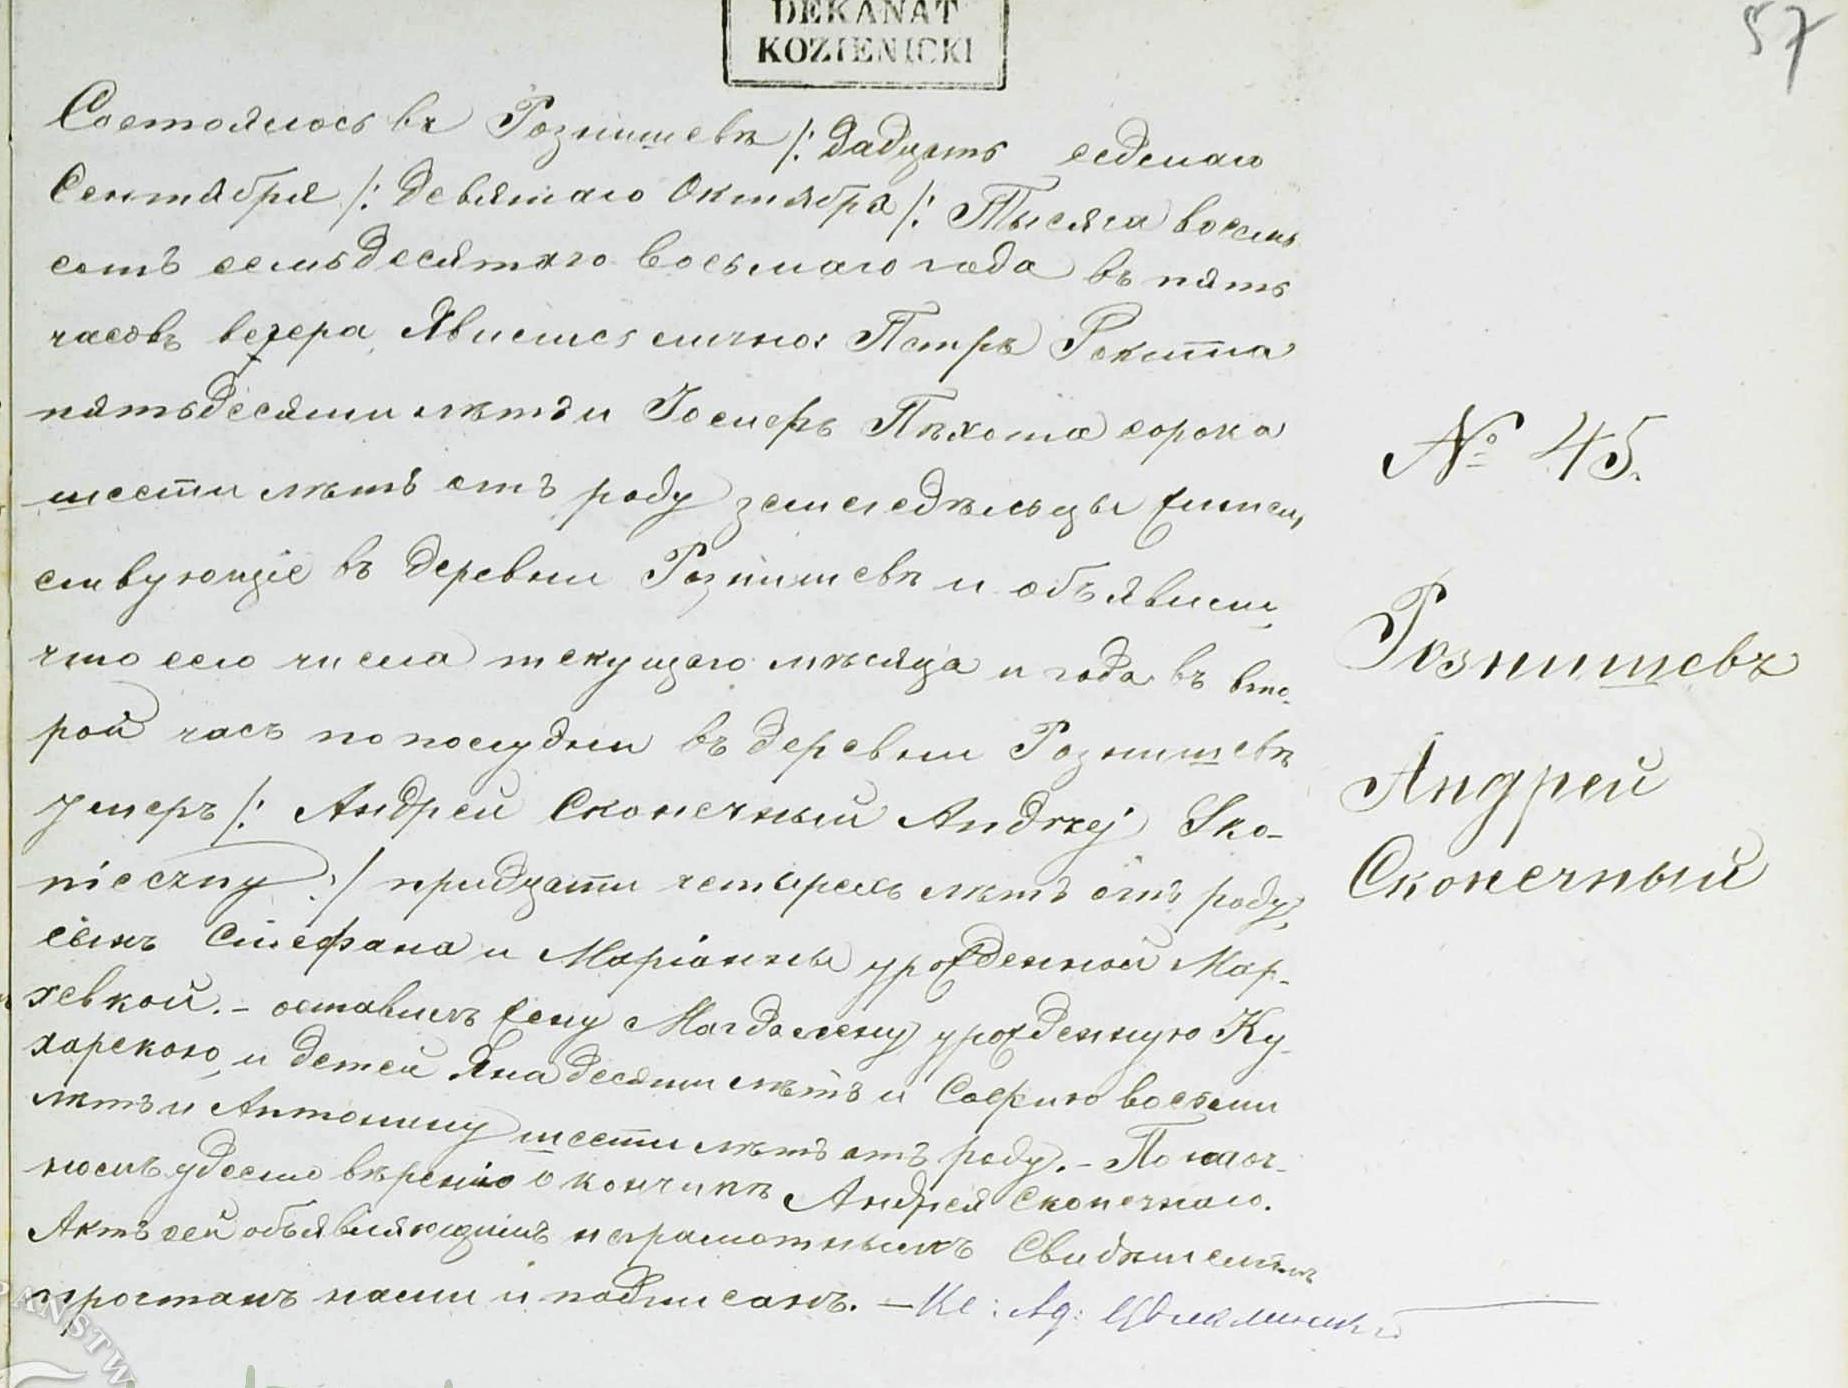 DEKANAT
KOZIENICKI
57
Состоялось въ Рознишевѣ /: Дадцать седмаго
Сентября /: Девятаго Октября /: Тысяча восемь
сотъ семьдесятаго восьмаго года въ пять
часовъ вечера Явились лично: Петръ Рокитта
пятьдесяти лѣтъ и Іосифъ Пѣхота сорока
шести лѣтъ отъ роду земледѣльцы
въ деревни Рознишевѣ и объявили,
что сего числа текущаго мѣсяца и года въ вто-
рой часъ пополудни въ деревни Рознишевѣ
умеръ /: Андрей Сконечный Andrzej Sko-
nieczny :/ тридцати четырехъ лѣтъ отъ роду,
сынъ Стефана и Маріанны урожденной Мар-
хевкой. - оставивъ жену Магдалену урожденную Ку-
харскою, и детей Яна десяти лѣтъ и Софию восьми
лѣтъ и Антонину шести лѣтъ отъ роду. - По наоч-
номъ удостовѣренію о кончинѣ Андрея Сконечнаго.
Актъ сей объявляющимъ неграмотнымъ Свидѣтелямъ
прочтанъ нами и подписанъ. — Кс: Ад:
№ 45.
Рознишевъ
Андрей
Сконечный